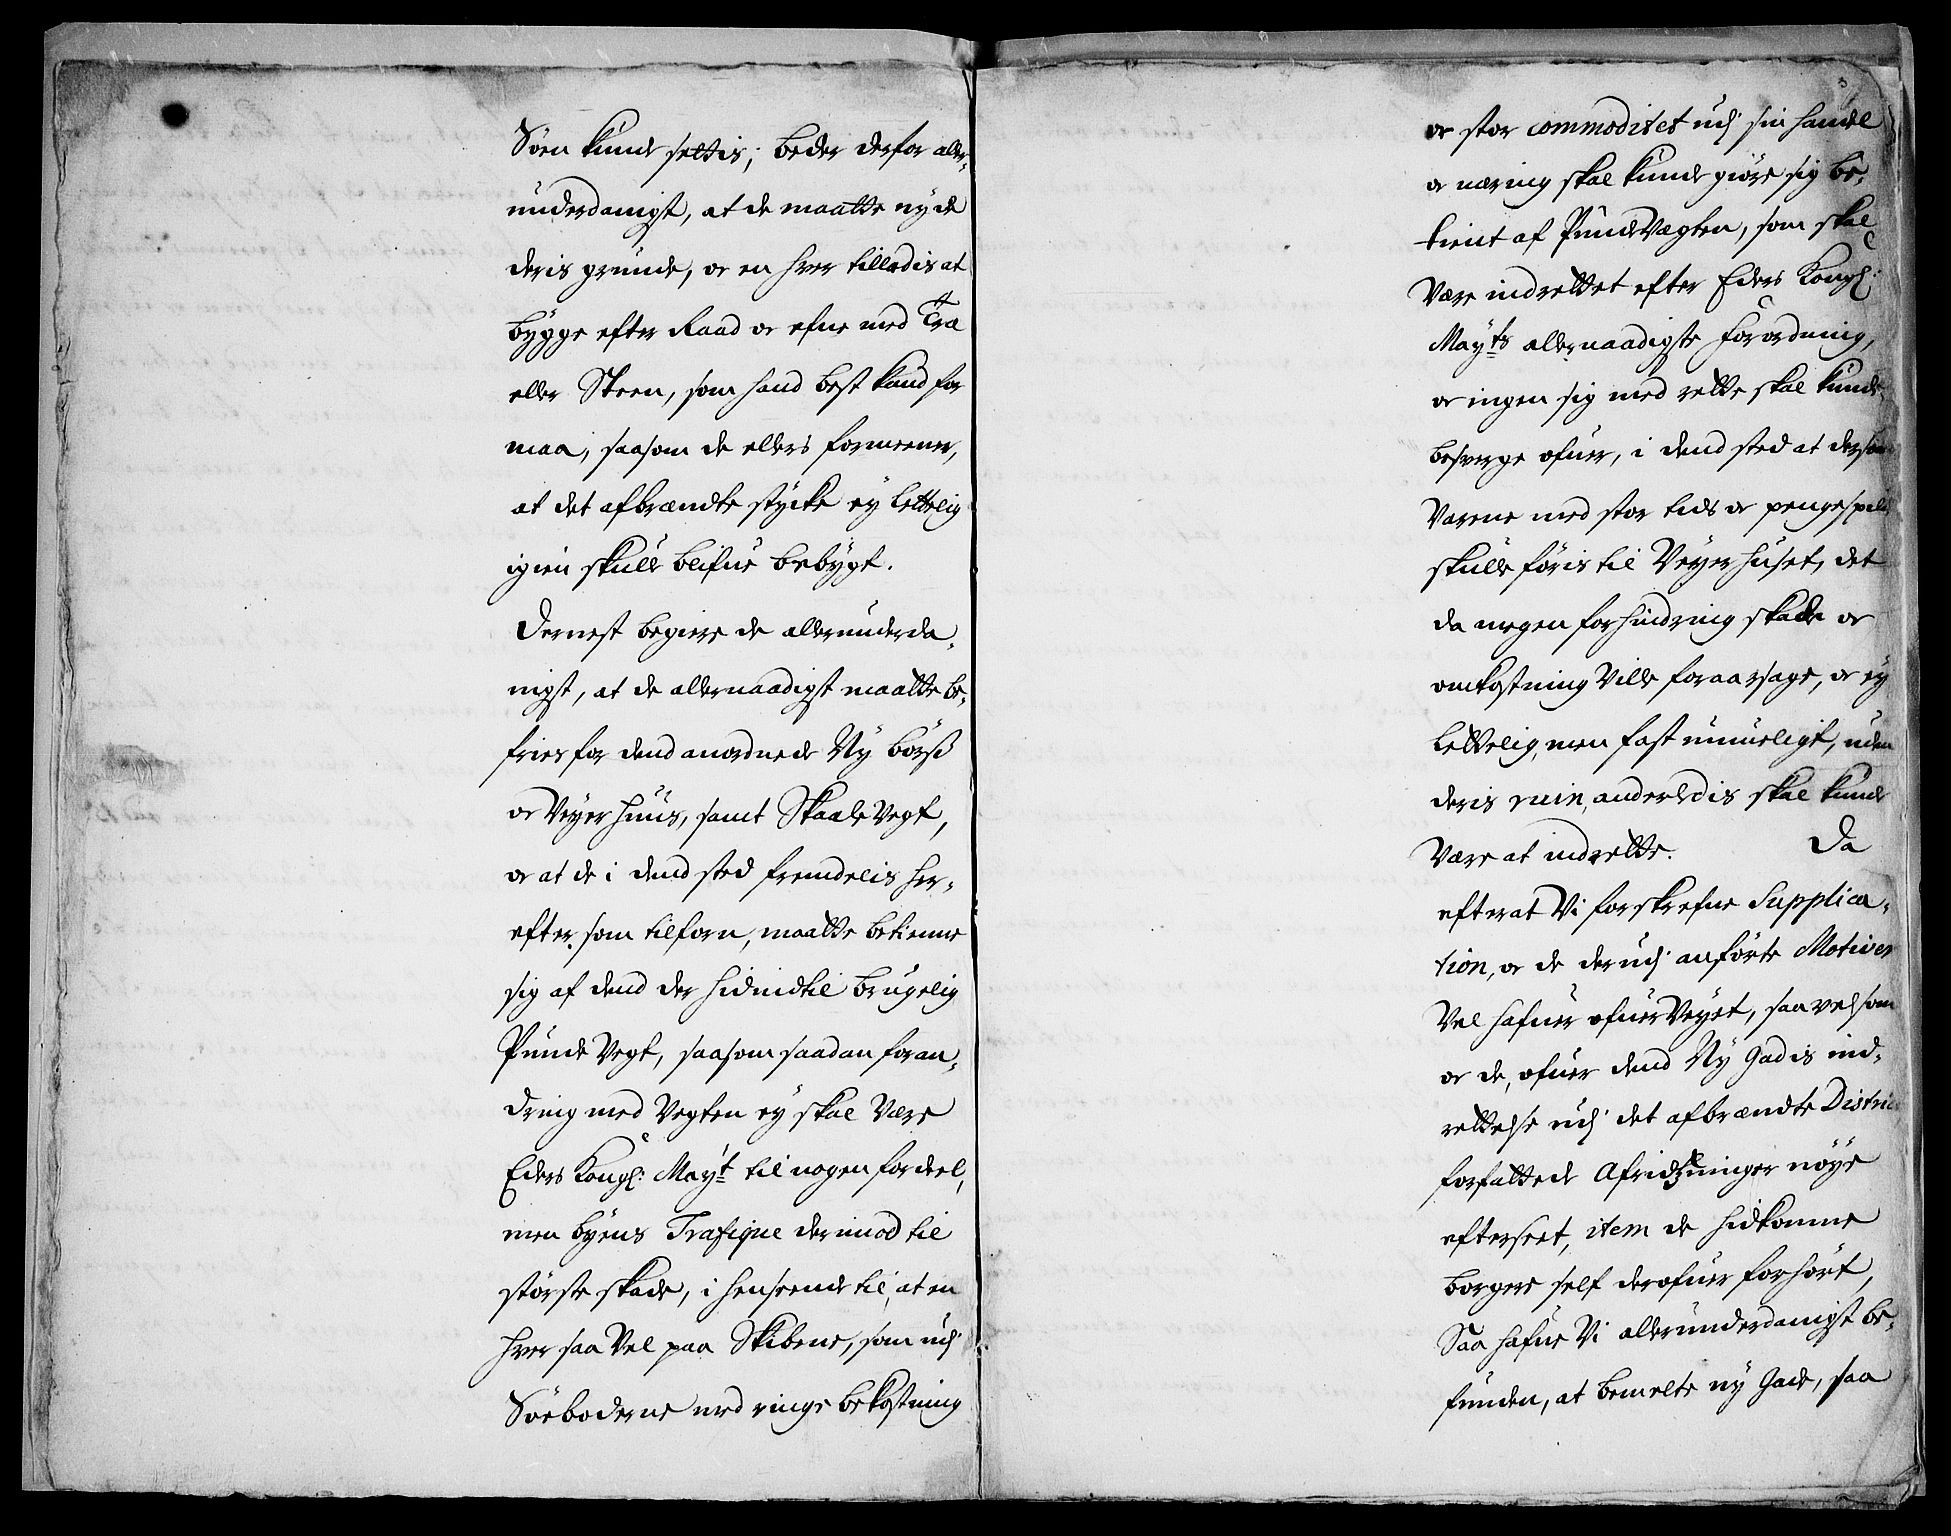 Söen kunde settis; beder derfor aller-
underdanigst, at de maatte nyde
deris grunde, oc en hver tilladis at
bÿgge efter Raad oc efne med Træ
eller Steen, som hand best kand for
maa, saasom de ellers formeener,
at det afbrændte stÿcke eÿ lettelig
igien skulle blifue bebÿgt.
Dernest begiere de allerunderda-
nigst, at de allernaadigst maatte be-
fries for dend anordnede Nÿ börs
oc Veyerhuus, samt Skaale Vegt,
oc at de i dend sted fremdelis her-
efter, som tilforn, maatte betienne
sig af dend der hidindtil brugelig
Punde Vegt, saasom saadan foran-
dring med Vegten eÿ skal være
Eders Kongl: Mayt til nogen fordeel,
men byens Trafique derimod til
störste skade, i henseende til, at en
hver saa vel paa Skibene, som udj
Söeboderne med ringe bekostning
3
oc stor commoditet udj sin handel
oc næring skal kunde giöre sig be-
tient af Pundvægten, som skal
være indrettet efter Eders Kongl:
Mayts allernaadigste Forordning,
oc ingen sig med rette skal kunde
besverge ofuer, i dend sted at dersom
Varene med stor tids oc pengespilde
skulle föris til Veyerhuset, det
da megen forhindring skade oc
omkostning ville foraarsage, oc eÿ
lettelig, men fast umueligt, uden
deris ruin, anderledis skal kunde
være at indrette. Da
efterat Vi forskrefne Supplica-
tion, oc de derudj anförte Motiver
vel hafuer ofuerveyet, saavelsom
oc de, ofuer dend Nÿ Gadis ind-
rettelse udj det afbrændte District
forfattede Afridzninger nöÿe
efterseet, item de hidkomne
borgere self derofuer forhört,
Saa hafue Vi allerunderdanigst be-
funden, at bemelte nÿ Gade, saa